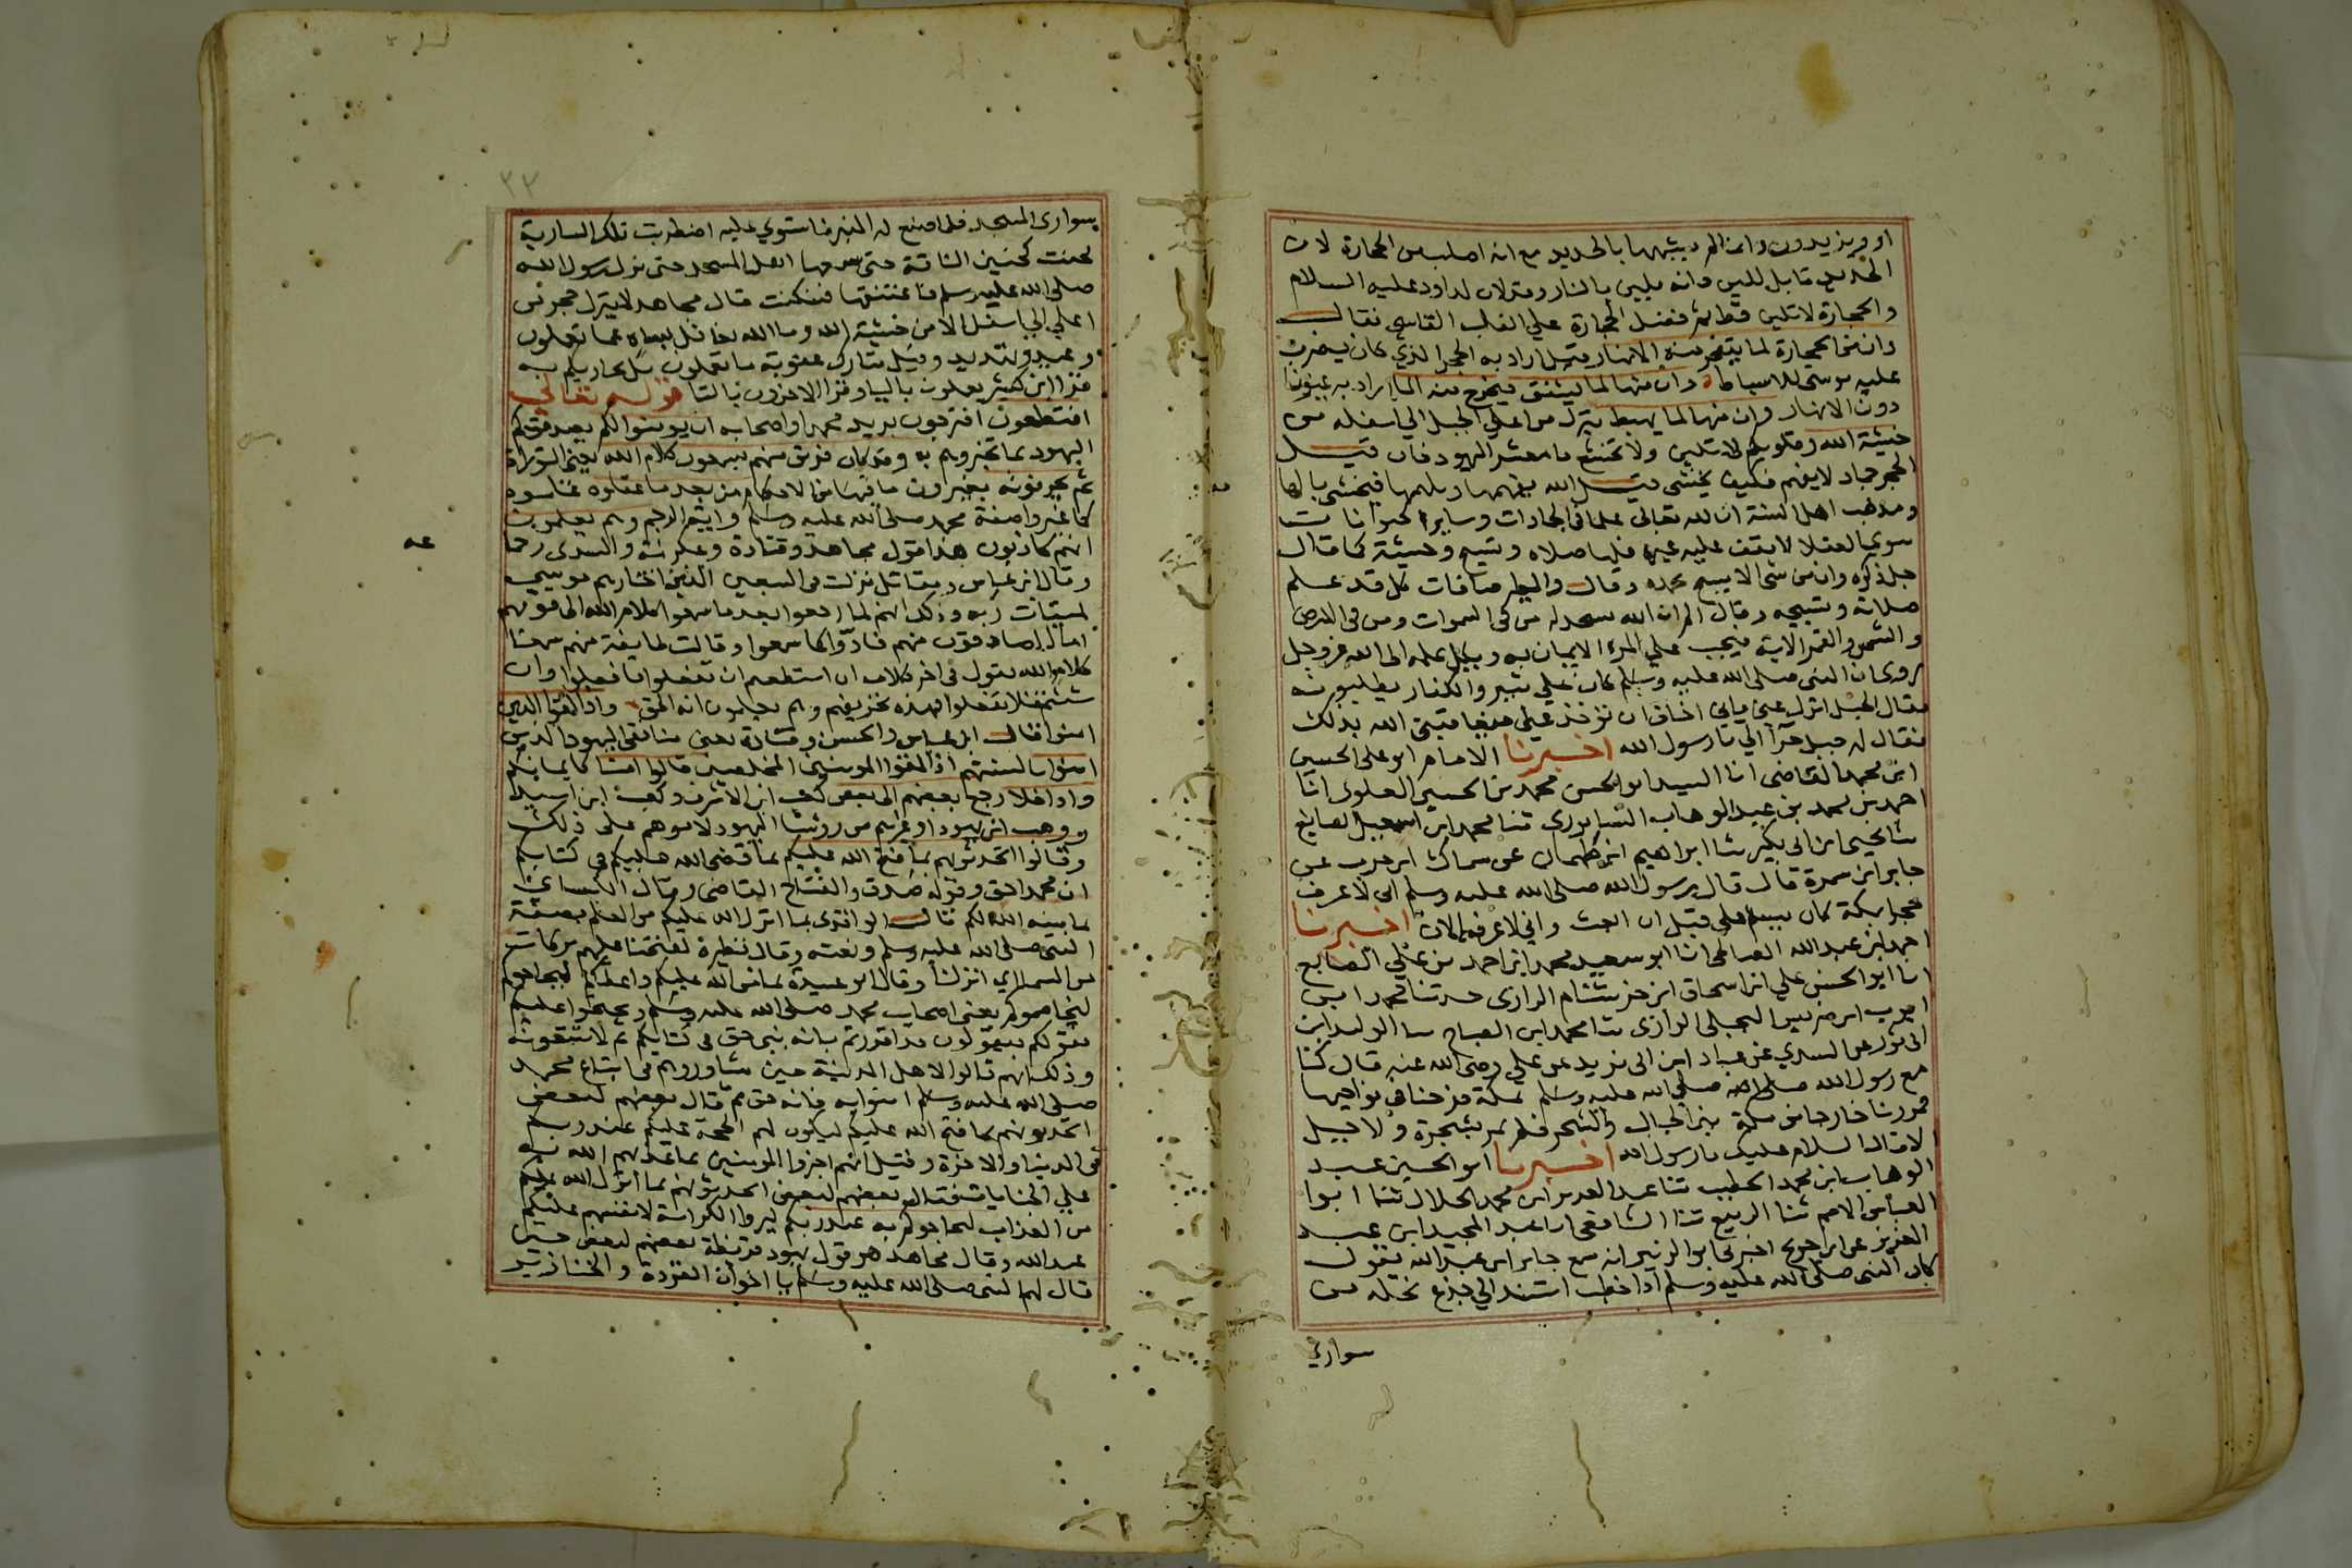 او ويزيدون وانما لم يشبهها بالحديد مع انه اصلب من الحجارة لان
الحديد قابل للين فانه يلين بالنار وقد لان لداود عليه السلام
والحجارة لا تلين قط ثم فضل الحجارة علي القلب القاسي فقال
وان من الحجارة لما يتفجر منه الانهار وقيل اراد به الحجر الذي كان يضرب
عليه موسى للاسباط وان منها لما يشقق فيخرج منه الما اراد به عيونا
دون الانهار وان منها لما يهبط ينزل من اعلي الجبل الي اسفله من
خشية الله وقلوبكم لا تلين ولا تخشع يا معشر اليهود فان قيل
الحجر جماد لا يفهم فكيف يخشى قيل الله يفهمها ويلهمها فيخشى بالهامه
ومذهب اهل السنة ان لله تعالى علما في الجمادات وساير الحيوانات
سوي العقلا لا يقف عليه غيره فلها صلاه وتسبيح وخشية كما قال
جل ذكره وان من شى الا يسبح بحمده وقال والطير صافات كل قد علم
صلاته وتسبيحه وقال الم تر ان الله يسجد له من في السموات ومن في الارض
والشمس والقمر الاية فيجب علي المرء الايمان به ويكل علمه الى الله عز وجل
روى ان النبى صلى الله عليه وسلم كان علي ثبير والكفار يطلبونه
فقال الجبل انزل عني فاني اخاف ان تؤخذ علي فيعاقبني الله بذلك
فقال له جبل حرآ الي يا رسول الله اخبرنا الامام ابو على الحسين
ابن محمد القاضى انا السيد ابو الحسن محمد بن الحسين العلوى انا
احمد بن محمد بن عبد الوهاب النيسابورى ثنا محمد ابن اسمعيل الصايغ
ثنا يحيى ابن ابى بكير ثنا ابراهيم ابن طهمان عن سماك ابن حرب عن
جابر ابن سمرة قال قال رسول الله صلى الله عليه وسلم انى لاعرف
حجرا بمكة كان يسلم علي قبل ان ابعث واني لاعرفه الان اخبرنا
احمد ابن عبد الله الصالحى انا ابو سعيد محمد ابن احمد بن علي الصايغ
انا ابو الحسن علي ابن اسحاق ابن خشنام الرازى حدثنا محمد ابن
ايوب ابن ضريس البجلى الرازى ثنا محمد ابن الصباح ثنا الوليد ابن
ابى ثور عن السدي عن عباد ابن ابى يزيد عن علي رضى الله عنه قال كنا
مع رسول الله صلى الله عليه وسلم بمكة فرحنا في نواحيها
فمررنا خارجا من مكة بين الجبال والشجر فلم يمر بشجرة ولا جبل
الا قال السلام عليك يا رسول الله اخبرنا ابو الحسن عبد
الوهاب ابن محمد الخطيب ثنا عبد العزيز ابن محمد الخلال ثنا ابوا
العباس الاصم ثنا الربيع ثنا الشافعى انا عبد المجيد ابن عبد
العزيز عن ابن جريج اخبرنى ابو الزبير انه سمع جابر ابن عبد الله يقول
كان النبى صلى الله عليه وسلم اذا خطب استند الي جذع نخلة من
سواري
٢٣
بسوارى المسجد فلما صنع له المنبر فاستوي عليه اضطربت تلك السارية
لحنت كحنين الناقة حتى سمعها اهل المسجد حتى نزل رسول الله
صلى الله عليه وسلم فاعتنقها فسكنت قال مجاهد لا ينزل حجر من
اعلي الي اسفل الا من خشية الله وما الله بغافل بساه عما تعملون
وعيد وتهديد وقيل بتارك عقوبة ما تعملون بل يجازيكم به
قرا ابن كثير يعملون باليا وقرا الاخرون بالتا قوله تعالى
افتطمعون افترجون يريد محمدا واصحابه ان يومنوا لكم يصدقكم
اليهود بما تخبرونهم به وقد كان فريق منهم يسمعون كلام الله يعني التوراة
ثم يحرفونه يغيرون ما فيها من الاحكام من بعد ما عقلوه علموه
كما غيروا صفة محمد صلى الله عليه وسلم واية الرجم وهم يعلمون
انهم كاذبون هذا قول مجاهد وقتادة وعكرمة والسدى رحمه
عه
وقال ابن عباس ومقاتل نزلت في السبعين الذين اختارهم موسى
لميقات ربه وذلك انهم لما رجعوا بعد ما سمعوا كلام الله الى قومهم
اما الصادقون منهم فادوا كما سمعوا وقالت طايفة منهم سمعنا
كلام الله يقول في اخر كلامه ان استطعتم ان تفعلوا فافعلوا وان
شئتم فلا تفعلوا فهذه تحريفهم وهم يعلمون انه الحق واذا لقوا الذين
امنوا قال ابن عباس والحسن وقتادة يعنى منافقى اليهود الذين
امنوا بالسنتهم اذا لقوا المومنين المخلصين قالوا امنا كايمانكم
واذا خلا رجع بعضهم الى بعض كعب ابن الاشرف وكعب ابن اسيد
ووهب ابن يهودا وغيرهم من روسا اليهود لاموهم على ذلك
وقالوا اتحدثونهم بما فتح الله عليكم بما قضى الله عليكم في كتابكم
ان محمدا حق وقوله صدق والفتاح القاضى وقال الكسائى
بما بينه الله لكم قال الواقدى بما انزل الله عليكم من العلم بصفة
النبى صلى الله عليه وسلم ونعته وقال نظيره لفتحنا عليهم بركات
من السما اي انزلنا وقال ابو عبيدة بما من الله عليكم واعطاكم ليحاجوكم
ليخاصموكم يعنى اصحاب محمد صلى الله عليه وسلم ويحتجوا عليكم
بقولكم فيقولون قد اقررتم بانه نبى حق في كتابكم ثم لا تتبعونه
وذلك انهم قالوا لاهل المدينة حين شاوروهم في اتباع محمد
صلى الله عليه وسلم امنوا به فانه حق ثم قال بعضهم لبعض
اتحدثونهم بما فتح الله عليكم ليكون لهم الحجة عليكم عند ربكم
في الدنيا والاخرة وقيل انهم اخبروا المومنين بما عذبهم الله به
علي الجنايات فقال بعضهم لبعض اتحدثونهم بما انزل الله عليكم
من العذاب ليحاجوكم به عند ربكم ليروا الكرامة لانفسهم عليكم
عند الله وقال مجاهد هو قول يهود قريظة بعضهم لبعض حين
قال لهم النبى صلى الله عليه وسلم يا اخوان القردة والخنازير